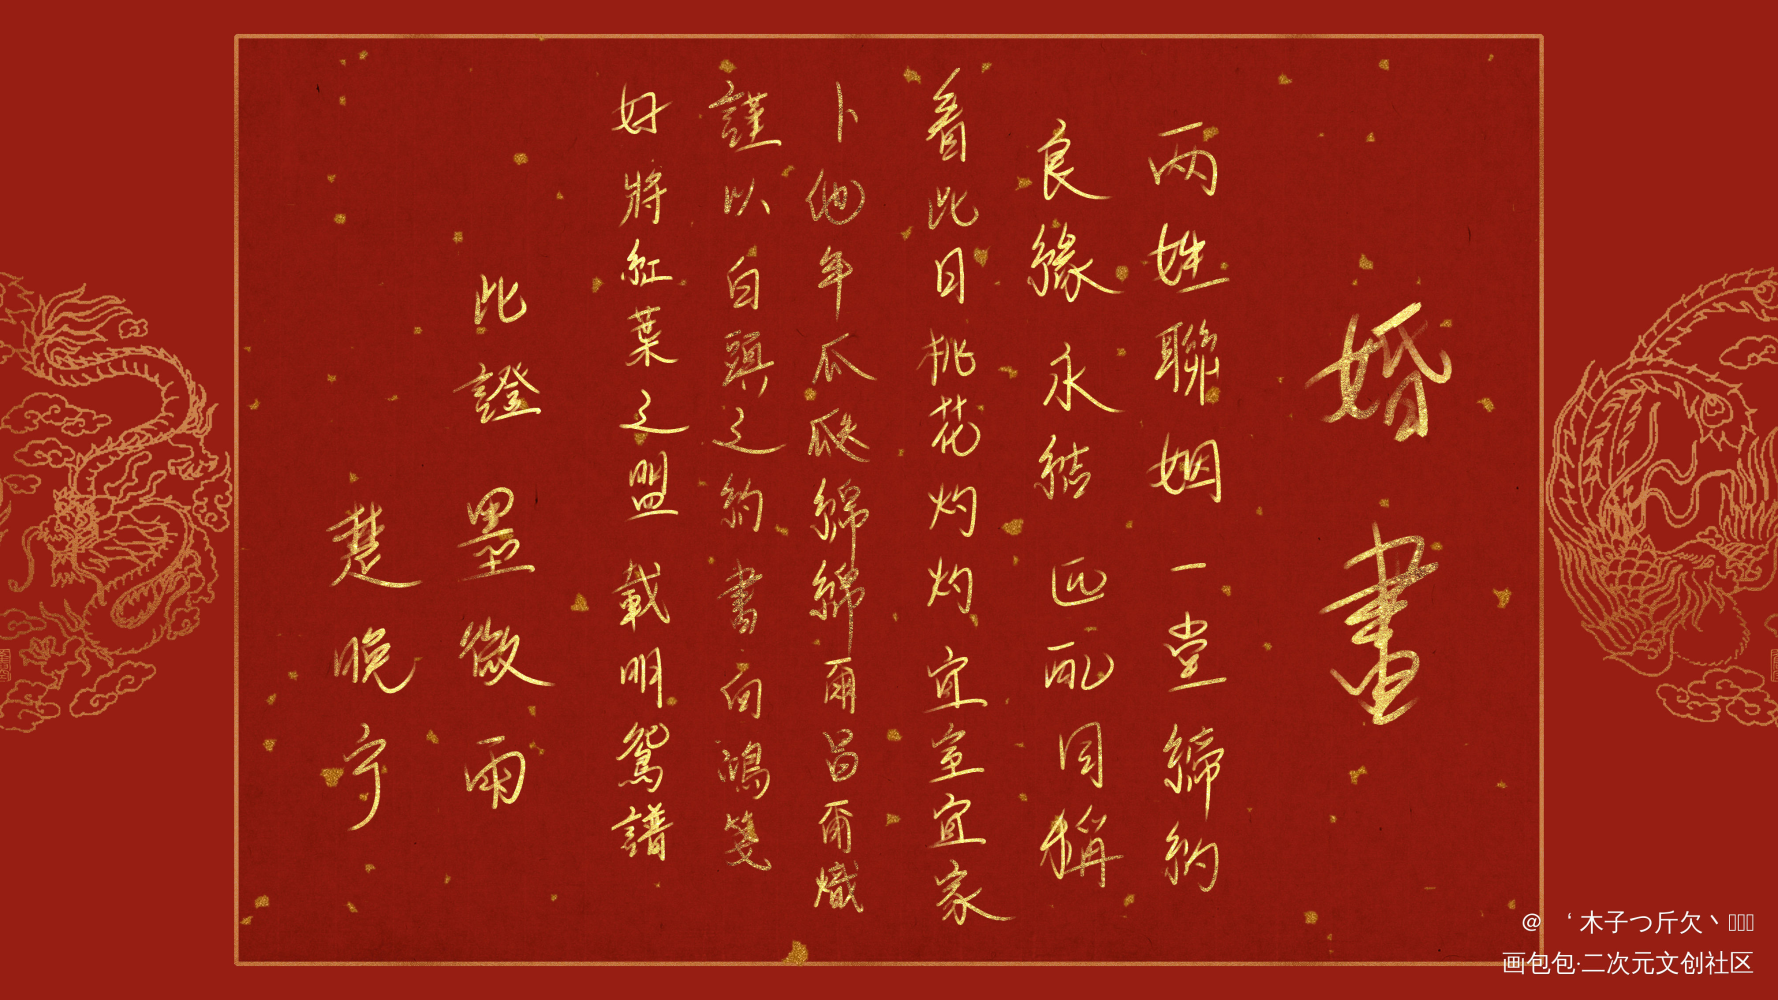 婚書
两姓聯姻 一堂締約
良緣永結 匹配同稱
看此日桃花灼灼 宜室宜家
卜他年瓜瓞綿綿 爾昌爾熾
謹以白頭之約 書向鴻箋
好將紅葉之盟 載明鴛譜
此證 墨微雨
楚晚宁
@ ‘ 木子つ斤欠丶
画包包·二次元文创社区